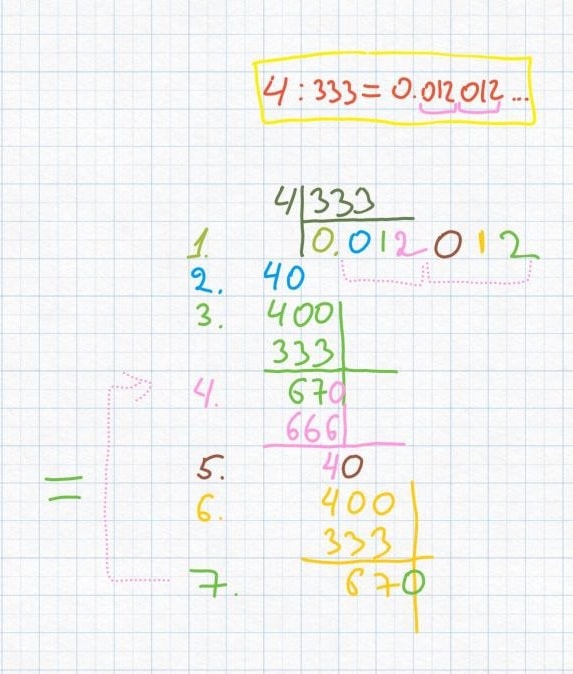 4 : 333 = 0.012 012 ...
4 333
1. 0.012 012
2. 40
3. 400
333
4. 670
666
5. 40
6. 400
333
7. 670
=